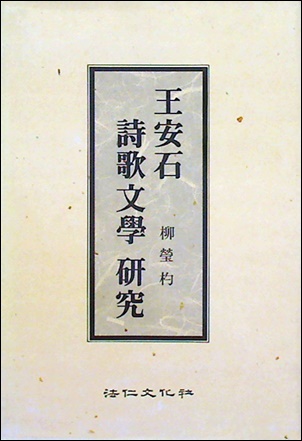 王安石
詩歌文學 研究
柳瑩杓
法仁文化社